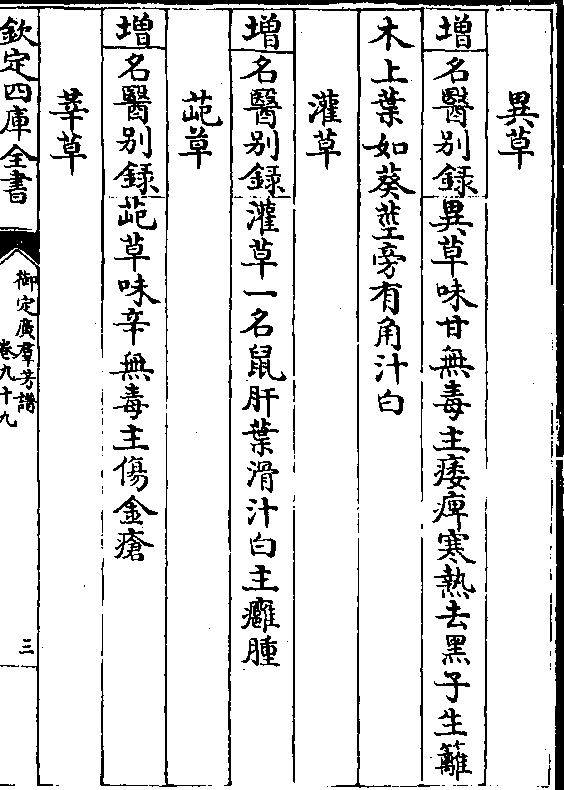 異草
增名醫别録異草味甘無毒主痿痺寒熱去黑子生籬
木上葉如葵莖旁有角汁白
灌草
增名醫别録灌草一名鼠肝葉滑汁白主癰腫
茈草
增名醫别録茈草味辛無毒主傷金瘡
莘草
欽定四庫全書
御定廣羣芳譜
卷九十九
三